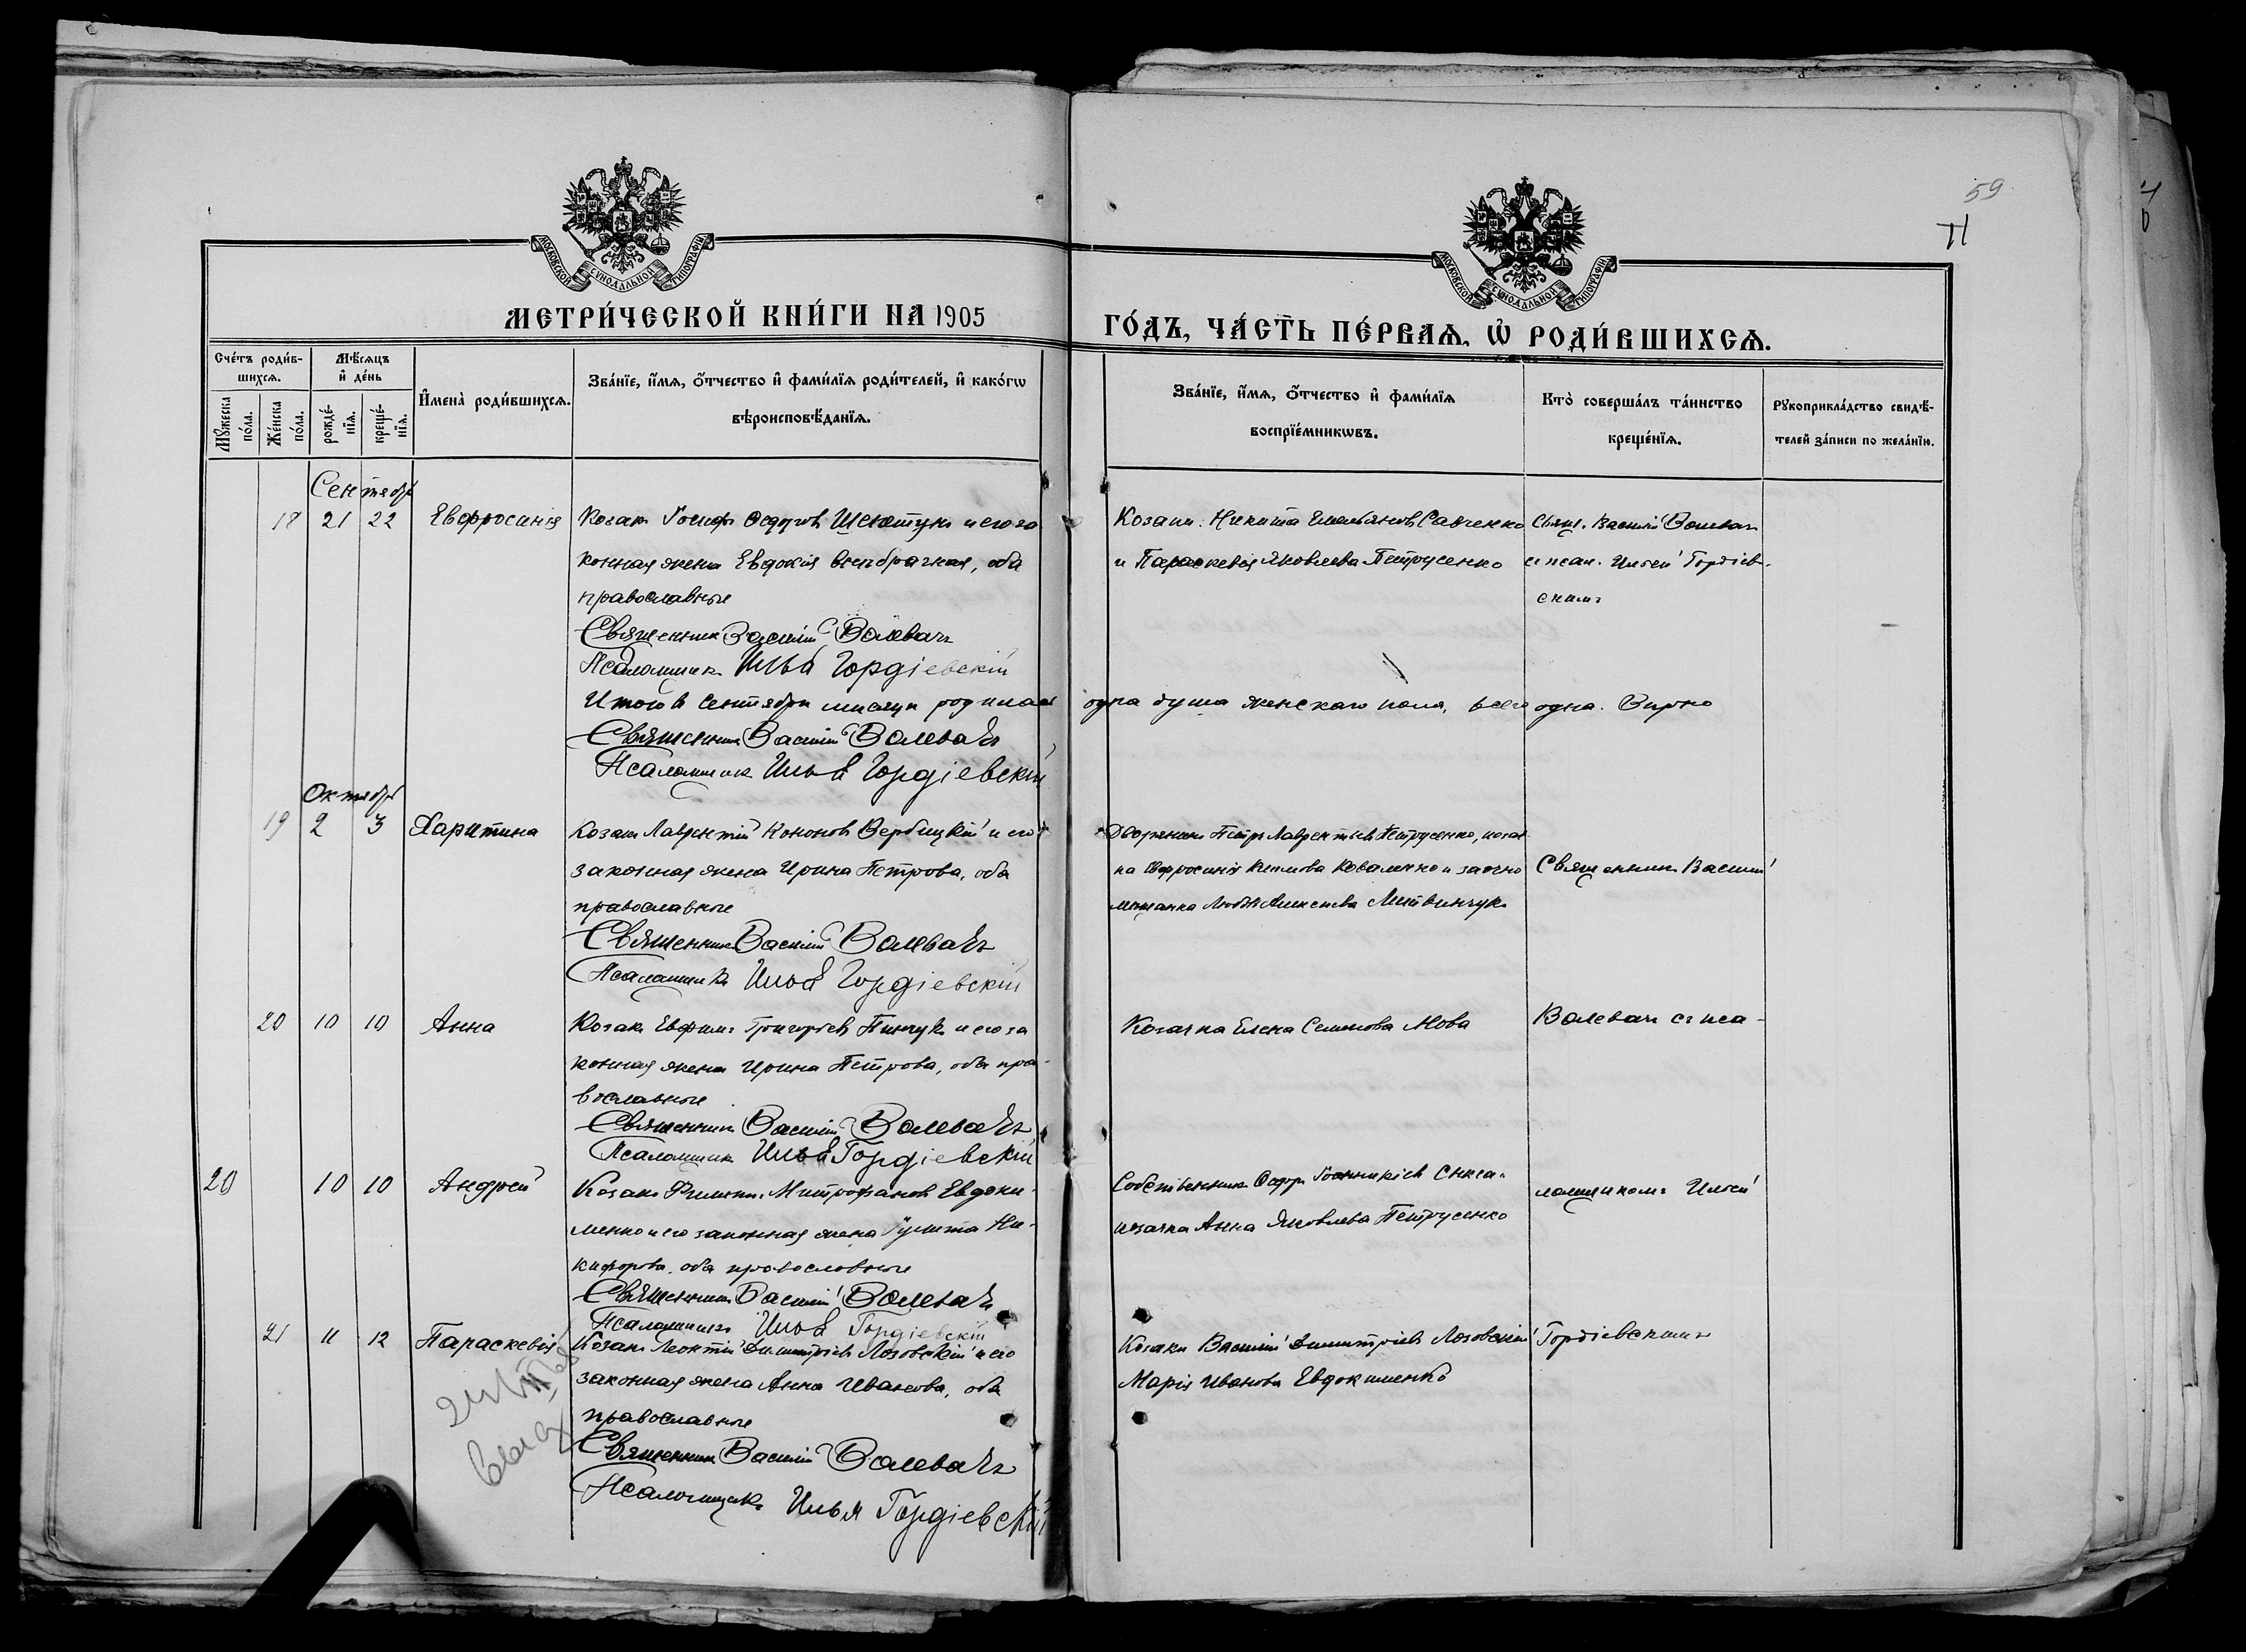 59
11
МОСКОВСКОЙ СѴНОДАЛЬНОЙ ТИПОГРАФІИ
МОСКОВСКОЙ СѴНОДАЛЬНОЙ ТИПОГРАФІИ
МЕТРИ́ЧЕСКОЙ КНИ́ГИ НА 1905
ГО́ДЪ, ЧА́СТЬ ПЕ́РВАѦ, Ѡ҆ РОДИ́ВШИХСѦ.
Сче́тъ роди́в-
шихсѧ.
Мѣ́сѧцъ
и҆ де́нь
И҆мена̀ роди́вшихсѧ.
Зва́нїе, и҆́мѧ, ѻ҆́тчество и҆ фами́лїѧ роди́телей, и҆ како́гѡ
вѣроисповѣ́данїѧ.
Мꙋ́жеска
по́ла.
Же́нска
по́ла.
рожде́-
нїѧ.
креще́-
нїѧ.
Зва́нїе, и҆́мѧ, ѻ҆́тчество и҆ фами́лїѧ
воспрїе́мникѡвъ.
Кто̀ соверша́лъ та́инство
креще́нїѧ.
Рꙋкоприкла́дство свидѣ́-
телей за́писи по жела́нїю.
Сентябрь
18 21 22 Евфросинія Козакъ Іосифъ Федоровъ и его за
конная жена Евдокія оба
православные
Священникъ Василій Волевачъ
Псаломщикъ Илья Гордіевскій
Козаки: Никита Емельяновъ Савченко
и Параскевія Яковлева Петрусенко
Свящ. Василій Волевачъ
с псал. Ильей Гордіев-
скимъ
Итого въ Сентябрѣ месяцѣ родилась одна душа женскаго пола, всего одна. Вѣрно
Священникъ Василій Волевачъ
Псаломщикъ Илья Гордіевскій
Октябрь
19 2 3 Харитина Козакъ Лаврентій Кононовъ Вербицкій и его
законная жена Ирина Петрова, оба
православные
Священникъ Василій Волевачъ
Псаломщикъ Илья Гордіевскій
Дворянинъ Петръ Лаврентьевъ Петрусенко, козач
ка Евфросинія Коваленко и заочно
мѣщанка Любовь Алексѣева Литвинчукъ
Священникъ Василій
20 10 10 Анна Козакъ Евфимъ Григорьевъ Пинчукъ и его за
конная жена Ирина Петрова, оба пра-
вославные
Священникъ Василій Волевачъ
Псаломщикъ Илья Гордіевскій
Козачка Елена Семенова Мова
Волевачъ съ пса-
20 10 10 Андрей Козакъ Филиппъ Митрофановъ Евдоки-
менко и его законная жена Іулита Ни-
кифорова, оба православные
Священникъ Василій Волевачъ
Псаломщикъ Илья Гордіевскій
Собственникъ Федоръ Іоанникіевъ
козачка Анна Яковлева Петрусенко
ломщикомъ Ильей
21 11 12 Параскевія Козакъ Леонтій Димитріевъ Лозовскій и его
законная жена Анна Иванова, оба
православные
Священникъ Василій Волевачъ
Псаломщикъ Илья Гордіевскій
Козаки Василій Димитріевъ Лозовскій
Марія Иванова Евдокименко
Гордіевскимъ